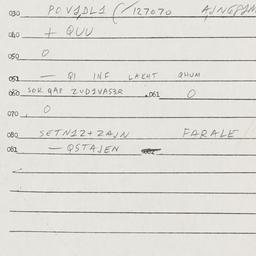 030 POVJDL1 (/127070 AJNGPJM
040 + QUU
050 0
051 — QI INF LAKHT QHUM
060 SOR QAP ZUD1VAS3R .061 0
070 0
080 SETN12+2AJN FARALE
081 — QSTAJEN